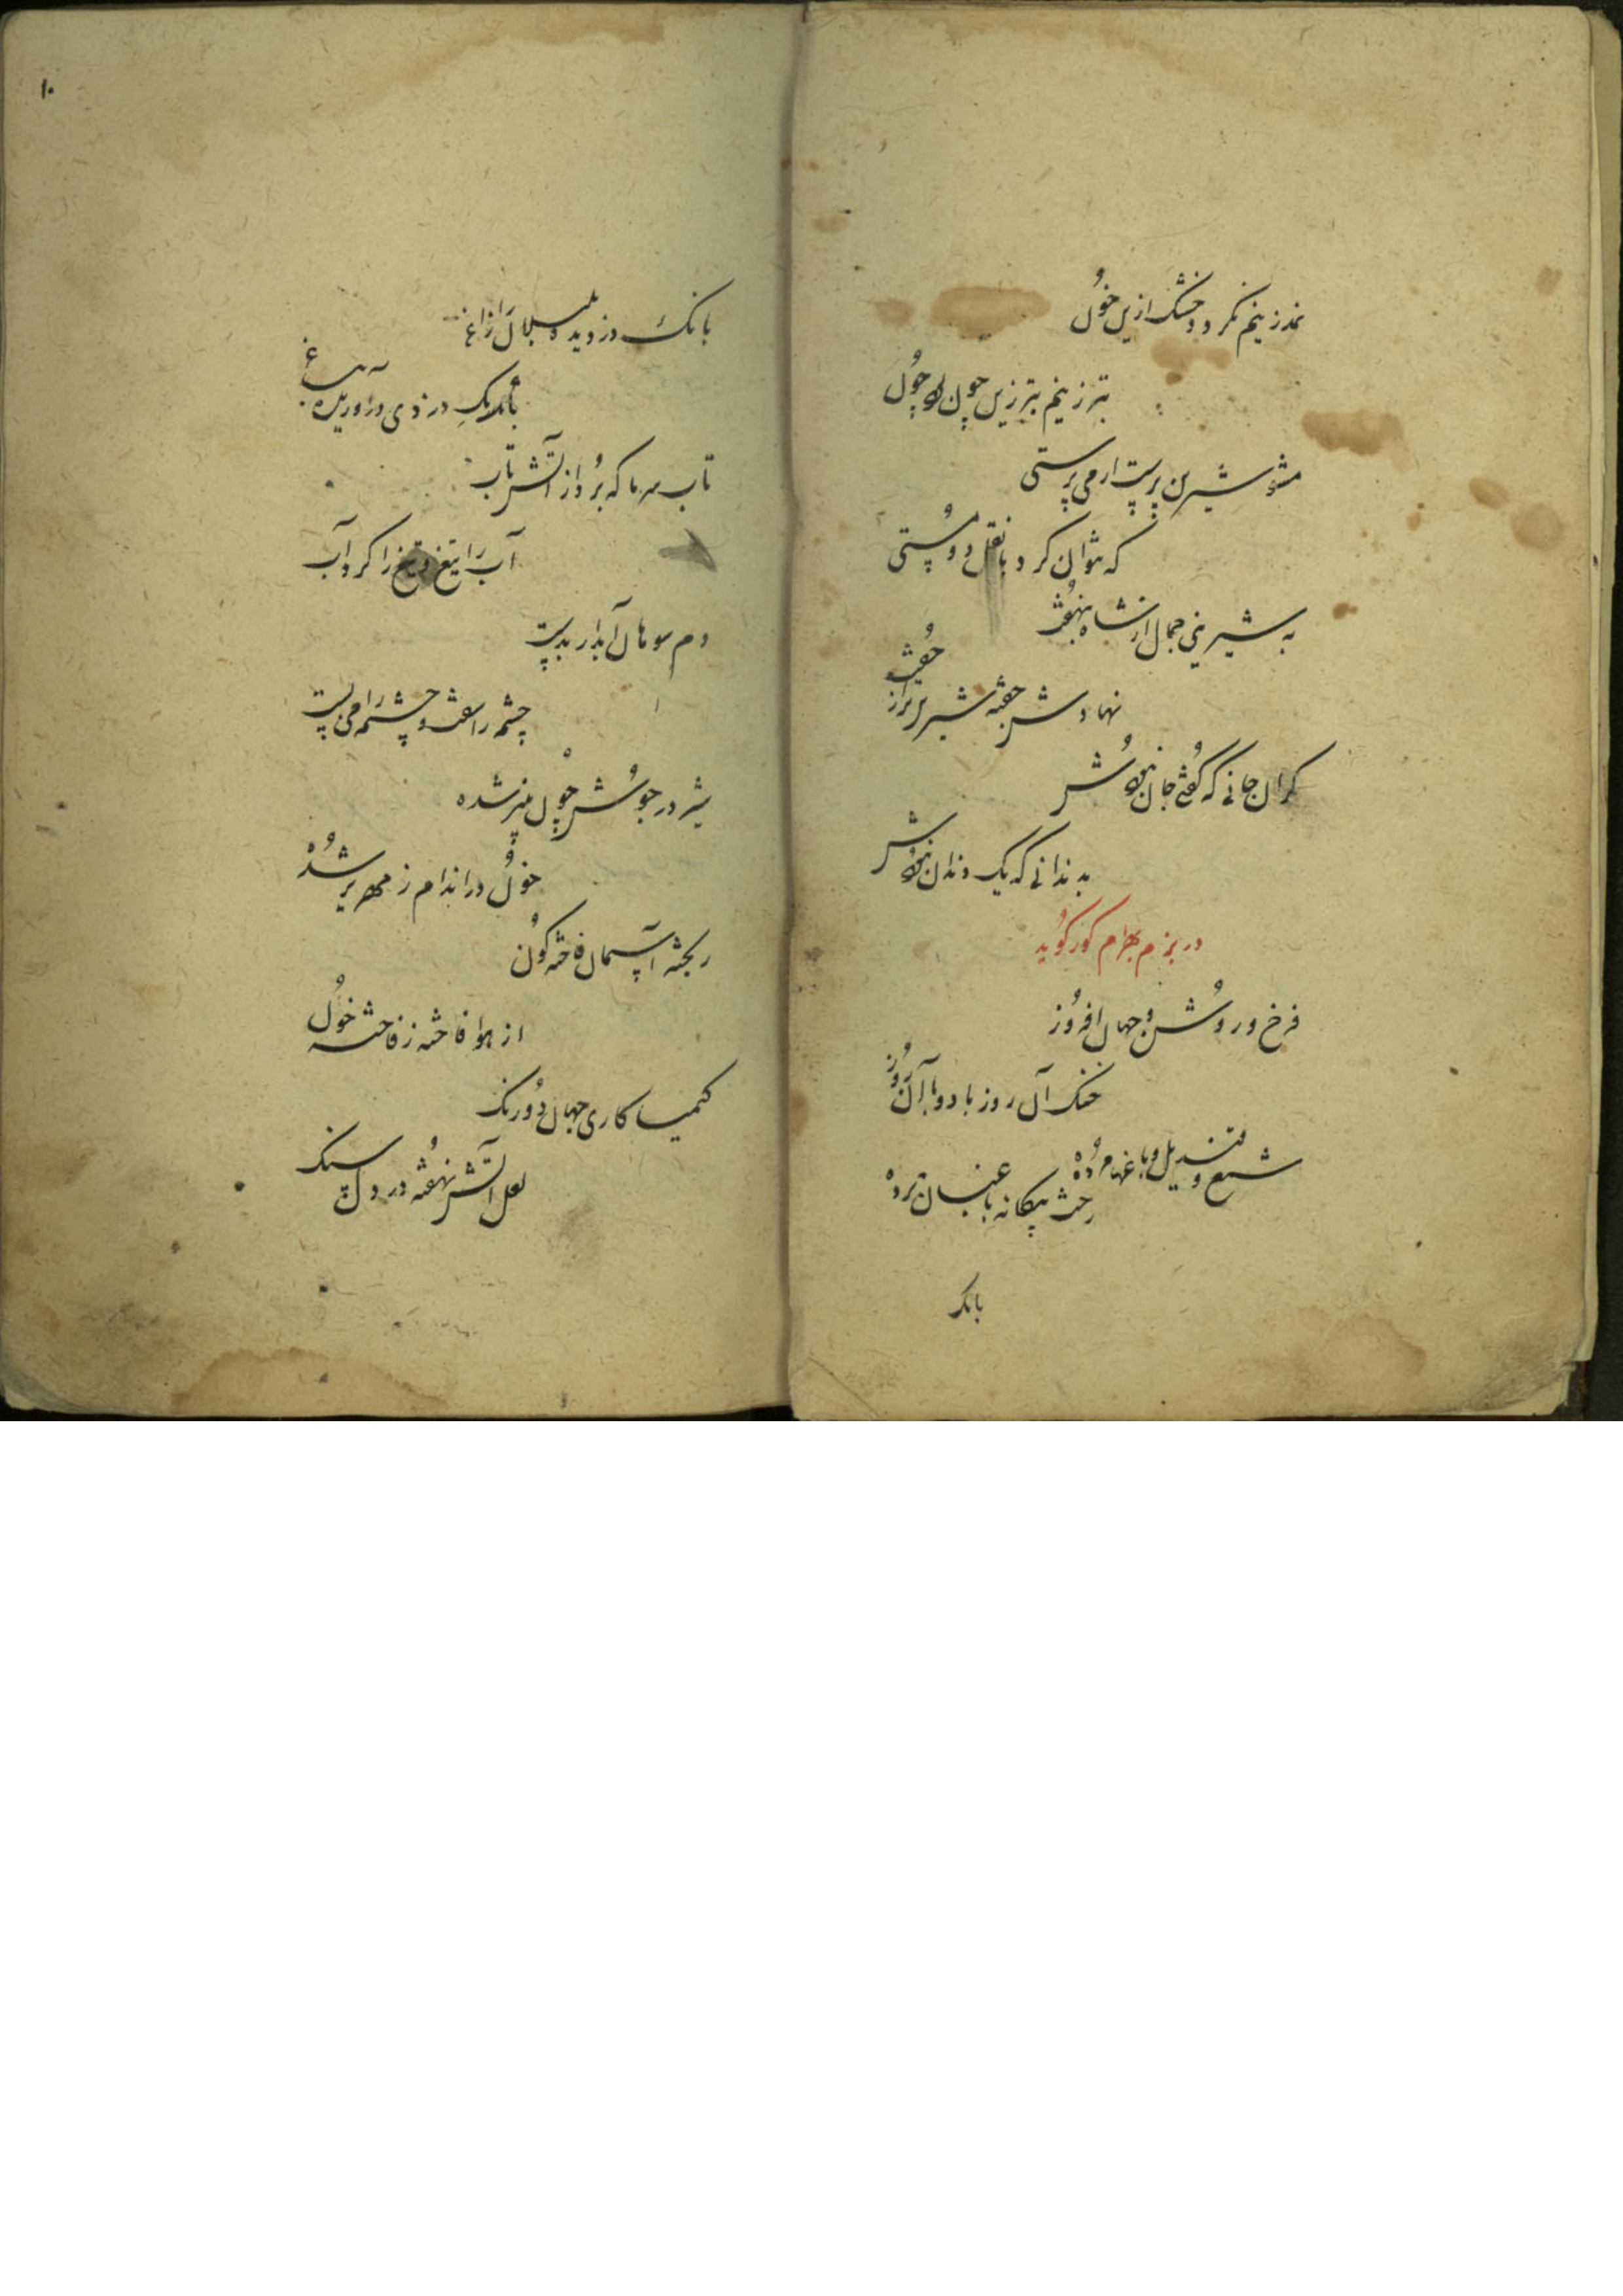 نمد زینم نکردد خشک ازین خون
بتر زینم بتر زین چون بود چون
مشو شیرین پرست ار می پرستی
که نتوان کرد با نقل دو مستی
به شیرینی جمال از شاه بنهفت
نهادش جفته شیرین تر از جفت
کران جانی که کفتی جان نبودش
به دندانی که یک دندان نبودش
در بزم بهرام کور کوید
فرخ و روشن و جهان افروز
خنک آن روز باد و باد آن روز
شمع و قندیل باغها مرده
رخت بیکانه باغبان برده
بانک
بانک دزدیده بلبلان را زاغ
بانک دزدی درآوریده بباغ
تاب سرما که برد از آتش تاب
آب را تیغ و تیغ را کرد آب
دم سوهان آبدار بدست
چشم را سفت و چشمه را می بست
شیر در جوش چون پنیر شده
خون در اندام زمهریر شده
ریخته آسمان فاخته کون
از هوا فاخته ز فاخته خون
کیمیا کاری جهان دو رنک
لعل آتش نهفته در دل سنک
۱۰